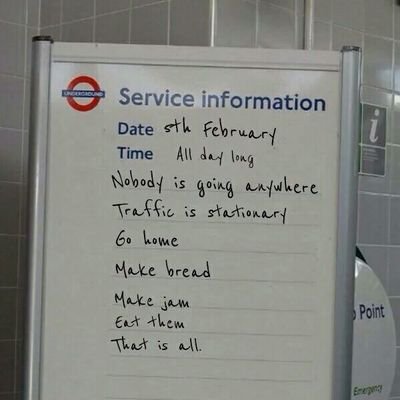 UNDERGROUND
Service information
Date 5th February
Time All day long
Nobody is going anywhere
Traffic is stationary
Go home
Make bread
Make jam
Eat them
That is all.
i
Point
Emergency